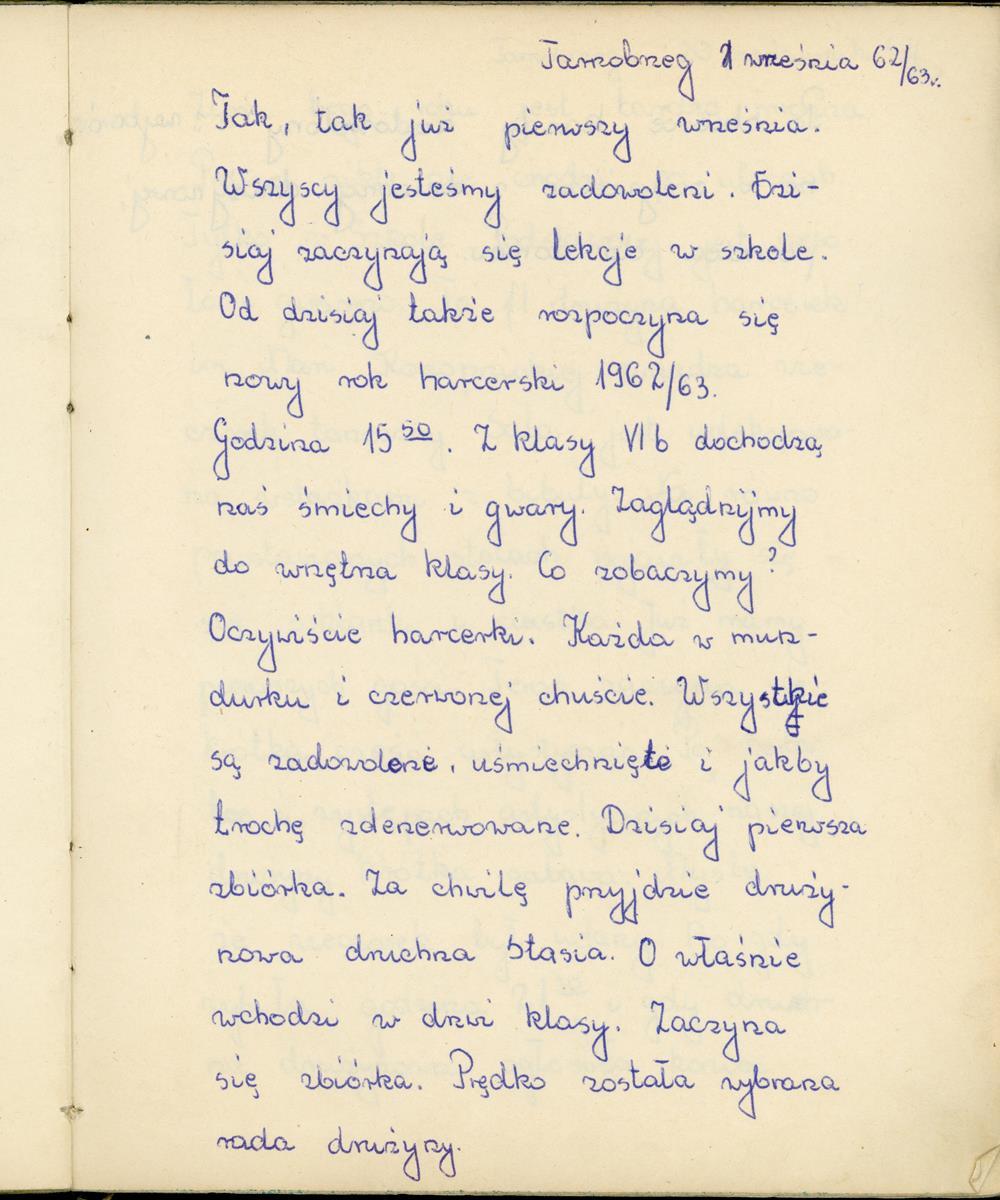 Tarnobrzeg 1 września 62/63r.
Tak, tak już pierwszy września.
Wszyscy jesteśmy zadowoleni. Dzi-
siaj zaczynają się lekcje w szkole.
Od dzisiaj także rozpoczyna się
nowy rok harcerski 1962/63.
Godzina 15 50. Z klasy VIb dochodzą
naś śmiechy i gwary. Zaglądnijmy
do wnętrza klasy. Co zobaczymy?
Oczywiście harcerki. Każda w mun-
durku i czerwonej chuście. Wszystkie
są zadowolone, uśmiechnięte i jakby
trochę zdenerwowane. Dzisiaj pierwsza
zbiórka. Za chwilę przyjdzie druży-
nowa druhna Stasia. O właśnie
wchodzi w drzwi klasy. Zaczyna
się zbiórka. Prędko została wybrana
rada drużyny.